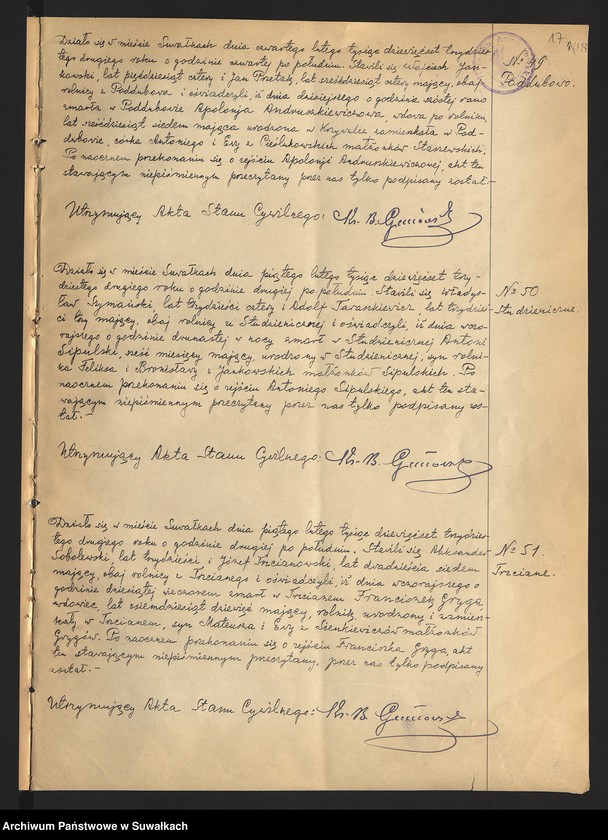 17
Działo się w mieście Suwałkach dnia czwartego lutego tysiąc dziewięćset trzydzies-
tego drugiego roku o godzinie czwartej po południu. Stawili się Wojciech Jan-
kowski, lat pięćdziesiąt cztery i Jan Pretak, lat sześćdziesiąt cztery mający, obaj
rolnicy z Poddubowa i oświadczyli, iż dnia dzisiejszego o godzinie szóstej rano
zmarła w Poddubowie Apolonja Andruskiewiczowa, wdowa po rolniku,
lat sześćdziesiąt siedem mająca urodzona w zamieszkała w Pod-
dubowie, córka Antoniego i Ewy z Cieślukowskich małżonków Staszewskich.
Po naocznem przekonaniu się o zejściu Apolonji Andruskiewiczowej, akt ten
stawającym niepiśmiennym przeczytany przez nas tylko podpisany został.-
Utrzymujący Akta Stanu Cywilnego: Ks. B.
No 49
Poddubowo.
Działo się w mieście Suwałkach dnia piątego lutego tysiąc dziewięćset trzy-
dziestego drugiego roku o godzinie drugiej po południu. Stawili się Włady-
sław Szymański lat trzydzieści cztery i Adolf Taraskiewicz, lat trzydzieś-
ci trzy mający, obaj rolnicy ze Studzienicznej i oświadczyli, iż dnia wczo-
rajszego o godzinie dwunastej w nocy zmarł w Studzienicznej Antoni
Sipulski, sześć miesięcy mający, urodzony w Studzienicznej, syn rolni-
ka Feliksa i Bronisławy z Jankowskich małżonków Sipulskich. Po
naocznem przekonaniu się o zejściu Antoniego Sipulskiego, akt ten sta-
wającym niepiśmiennym przeczytany przez nas tylko podpisany zos-
tał.-
Utrzymujący Akta Stanu Cywilnego: Ks. B.
No 50
Studzieniczne.
Działo się w mieście Suwałkach dnia piątego lutego tysiąc dziewięćset trzydzies-
tego drugiego roku o godzinie drugiej po południu. Stawili się Aleksander
Sobolewski, lat trzydzieści i Józef Trzcianowski, lat dwadzieścia siedem
mający, obaj rolnicy z Trzcianego i oświadczyli, iż dnia wczorajszego o
godzinie dziesiątej wieczorem zmarł w Trzcianem Franciszek Gryga,
wdowiec, lat osiemdziesiąt dziewięć mający, rolnik, urodzony i zamiesz-
kały w Trzcianem, syn Mateusza i Ewy z Sienkiewiczów małżonków
Grygów. Po naocznem przekonaniu się o zejściu Franciszka Gryga, akt
ten stawającym niepiśmiennym przeczytany, przez nas tylko podpisany
został.-
Utrzymujący Akta Stanu Cywilnego: Ks. B.
No 51.
Trzciane.
Archiwum Państwowe w Suwałkach